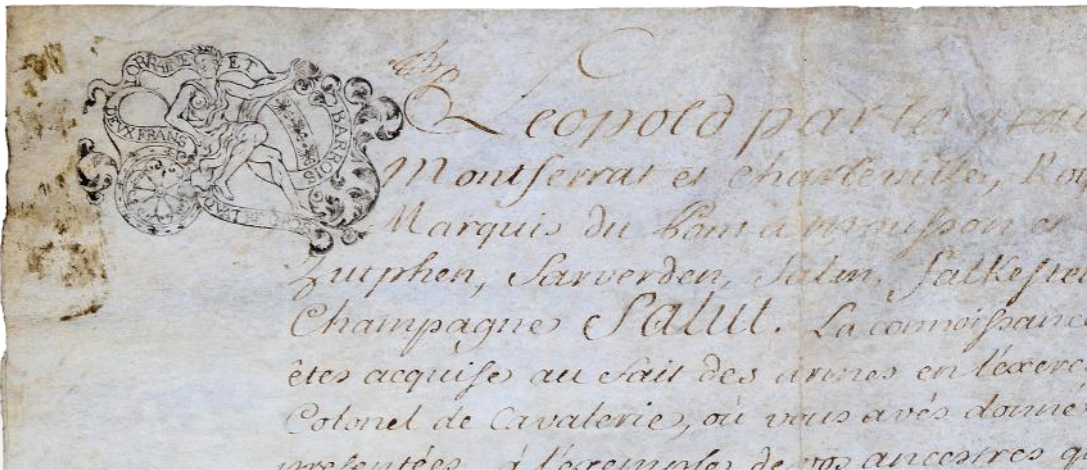 LORRAINE ET BARROIS
DEUX FRANS
Leopold par la grac
Montferrat et Charleville, Roi
Marquis du Pont a mousson et
Zutphen, Sarverden, Salm, Falkeste
Champagne Salut. La connoissance
êtes acquise au fait des armes en l'exerc
Colonel de Cavalerie, où vous avés donné
presentées à l'exemple de vos ancestres q